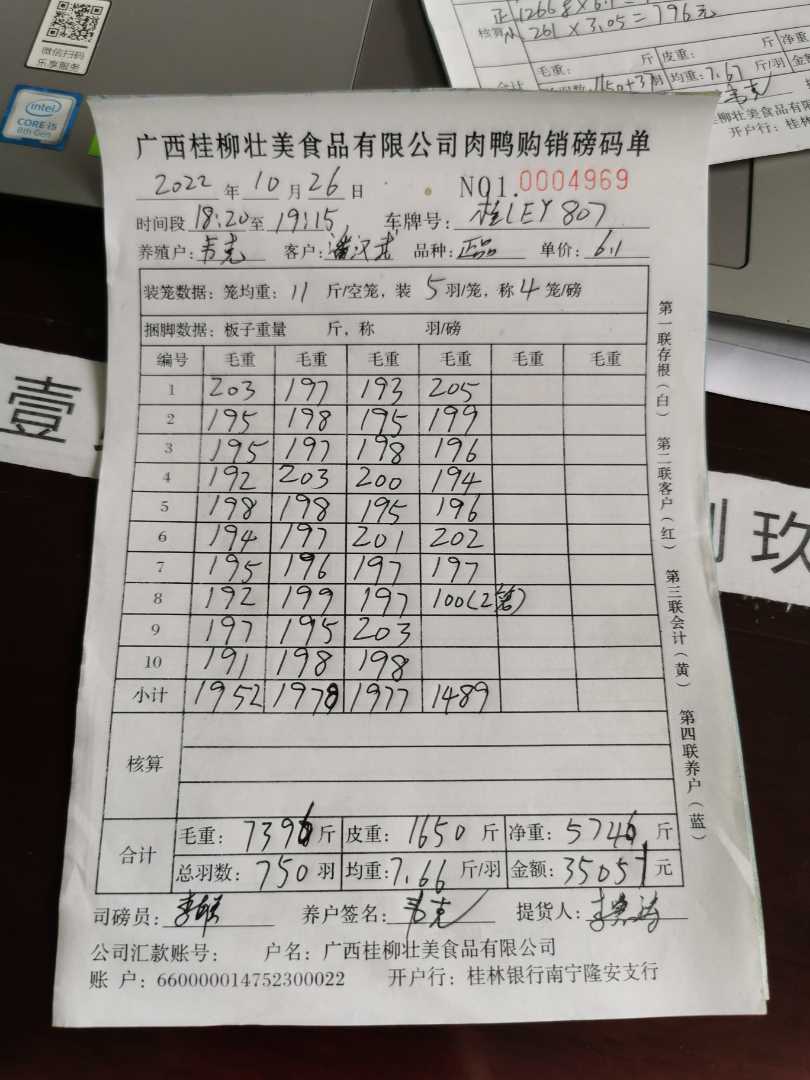 微信扫码
乐享服务
intel
CORE i5
8th Gen
正 1266
核算
261 × 3.05 = 796元
毛重： 斤 皮重： 斤 净重
合计
1150+3 羽 均重：7.67 斤/羽 金额
韦克
开户行：桂林
广西桂柳壮美食品有限公司肉鸭购销磅码单
2022 年 10 月 26 日 NO1.0004969
时间段 18:20 至 19:15 车牌号：桂LEY807
养殖户：韦克 客户：潘汉武 品种：正品 单价：6.1
装笼数据：笼均重：11 斤/空笼，装 5 羽/笼，称 4 笼/磅
捆脚数据：板子重量 斤，称 羽/磅
编号 毛重 毛重 毛重 毛重 毛重 毛重
1 203 197 193 205
2 195 198 195 199
3 195 197 198 196
4 192 203 200 194
5 198 198 195 196
6 194 197 201 202
7 195 196 197 197
8 192 199 197 100(2笼)
9 197 195 203
10 191 198 198
小计 1952 1978 1977 1489
核算
合计
毛重：7396 斤 皮重：1650 斤 净重：5746 斤
总羽数：750 羽 均重：7.66 斤/羽 金额：35051 元
司磅员： 养户签名：韦克 提货人：
公司汇款账号： 户名：广西桂柳壮美食品有限公司
账 户：660000014752300022 开户行：桂林银行南宁隆安支行
第一联存根（白） 第二联客户（红） 第三联会计（黄） 第四联养户（蓝）
壹
玖